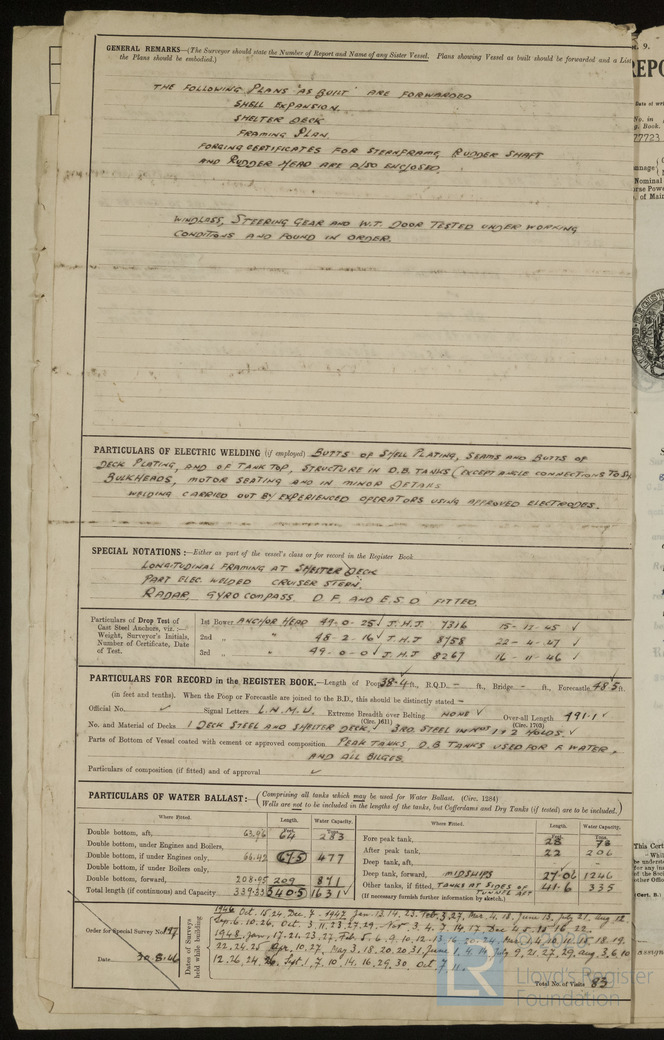 GENERAL REMARKS—(The Surveyor should state the Number of Report and Name of any Sister Vessel. Plans showing Vessel as built should be forwarded and a List
the Plans should be embodied.)
THE FOLLOWING PLANS "AS BUILT" ARE FORWARDED
SHELL EXPANSION.
SHELTER DECK
FRAMING PLAN.
FORGING CERTIFICATES FOR STERNFRAME, RUDDER SHAFT
AND RUDDER HEAD ARE ALSO ENCLOSED.
WINDLASS, STEERING GEAR AND W.T. DOOR TESTED UNDER WORKING
CONDITIONS AND FOUND IN ORDER.
PARTICULARS OF ELECTRIC WELDING (if employed) BUTTS OF SHELL PLATING, SEAMS AND BUTTS OF
DECK PLATING, AND OF TANK TOP, STRUCTURE IN D.B. TANKS (EXCEPT ANGLE CONNECTIONS TO
BULKHEADS, MOTOR SEATING AND IN MINOR DETAILS
WELDING CARRIED OUT BY EXPERIENCED OPERATORS USING APPROVED ELECTRODES.
SPECIAL NOTATIONS:—Either as part of the vessel's class or for record in the Register Book
LONGITUDINAL FRAMING AT SHELTER DECK
PART ELEC. WELDED CRUISER STERN.
RADAR, GYRO COMPASS D.F. AND E.S.D. FITTED.
Particulars of Drop Test of
Cast Steel Anchors, viz. :—
Weight, Surveyor's Initials,
Number of Certificate, Date
of Test.
1st Bower ANCHOR HEAD 49-0-25 ✓ J.H.J 7316 15-12-45 ✓
2nd „ „ 48-2-16 ✓ J.H.J 8758 22-4-47 ✓
3rd „ „ 49-0-0 ✓ J.H.J 8267 16-11-46 ✓
PARTICULARS FOR RECORD in the REGISTER BOOK.—Length of Poop 38.4 ft., R.Q.D. – ft., Bridge – ft., Forecastle 48.5 ft.
(in feet and tenths). When the Poop or Forecastle are joined to the B.D., this should be distinctly stated –
Official No. ✓ Signal Letters L.N.M.U. Extreme Breadth over Belting NONE ✓ Over-all Length 491.1 ✓
(Circ. 1611) (Circ. 1703)
No. and Material of Decks 1 DECK STEEL AND SHELTER DECK. ✓ 3RD STEEL IN Nos 1 & 2 HOLDS. ✓
Parts of Bottom of Vessel coated with cement or approved composition PEAK TANKS, D.B TANKS USED FOR F. WATER,
AND ALL BILGES.
Particulars of composition (if fitted) and of approval ✓
PARTICULARS OF WATER BALLAST:—(Comprising all tanks which may be used for Water Ballast. (Circ. 1284)
Wells are not to be included in the lengths of the tanks, but Cofferdams and Dry Tanks (if tested) are to be included.)
Where Fitted. Length. Water Capacity.
Feet. Tons.
Double bottom, aft, 63.96 64 283
Double bottom, under Engines and Boilers,
Double bottom, if under Engines only, 66.42 67.5 477
Double bottom, if under Boilers only,
Double bottom, forward, 208.95 209 871
Total length (if continuous) and Capacity 339.33 340.5 1631 ✓
Where Fitted. Length. Water Capacity.
Feet. Tons.
Fore peak tank, 28 78
After peak tank, 22 206
Deep tank, aft, – –
Deep tank, forward, MIDSHIPS 27.06 1246
Other tanks, if fitted, TANKS AT SIDES OF TUNNEL AFT 41.6 335
(If necessary furnish further information by sketch.)
Order for Special Survey No. 197
Date 30.8.46
Dates of Surveys
held while building
1946 Oct. 15, 24, Dec. 7. 1947 Jan. 13, 14, 23, Feb. 3, 27, Mar. 4, 18, June 13, July 21, Aug. 12
Sep. 6, 10, 26, Oct. 3, 11, 23, 27, 29, Nov. 3, 4, 7, 14, 17, Dec. 4, 5, 15, 16, 22.
1948. Jan. 17, 21, 23, 27, Feb. 5, 6, 9, 10, 12, 13, 16, 20, 24, Mar. 1, 4, 10, 11, 15, 18, 19,
22, 24, 25 Apr. 10, 27, May 3, 18, 20, 20, 31, June 1, 4, 14, July 9, 21, 27, 29, Aug. 3, 6, 10
12, 26, 24, 26, Sept. 1, 7, 10, 14, 16, 29, 30, Oct. 7, 11.
Total No. of Visits 83
Lloyd's Register
Foundation
LR